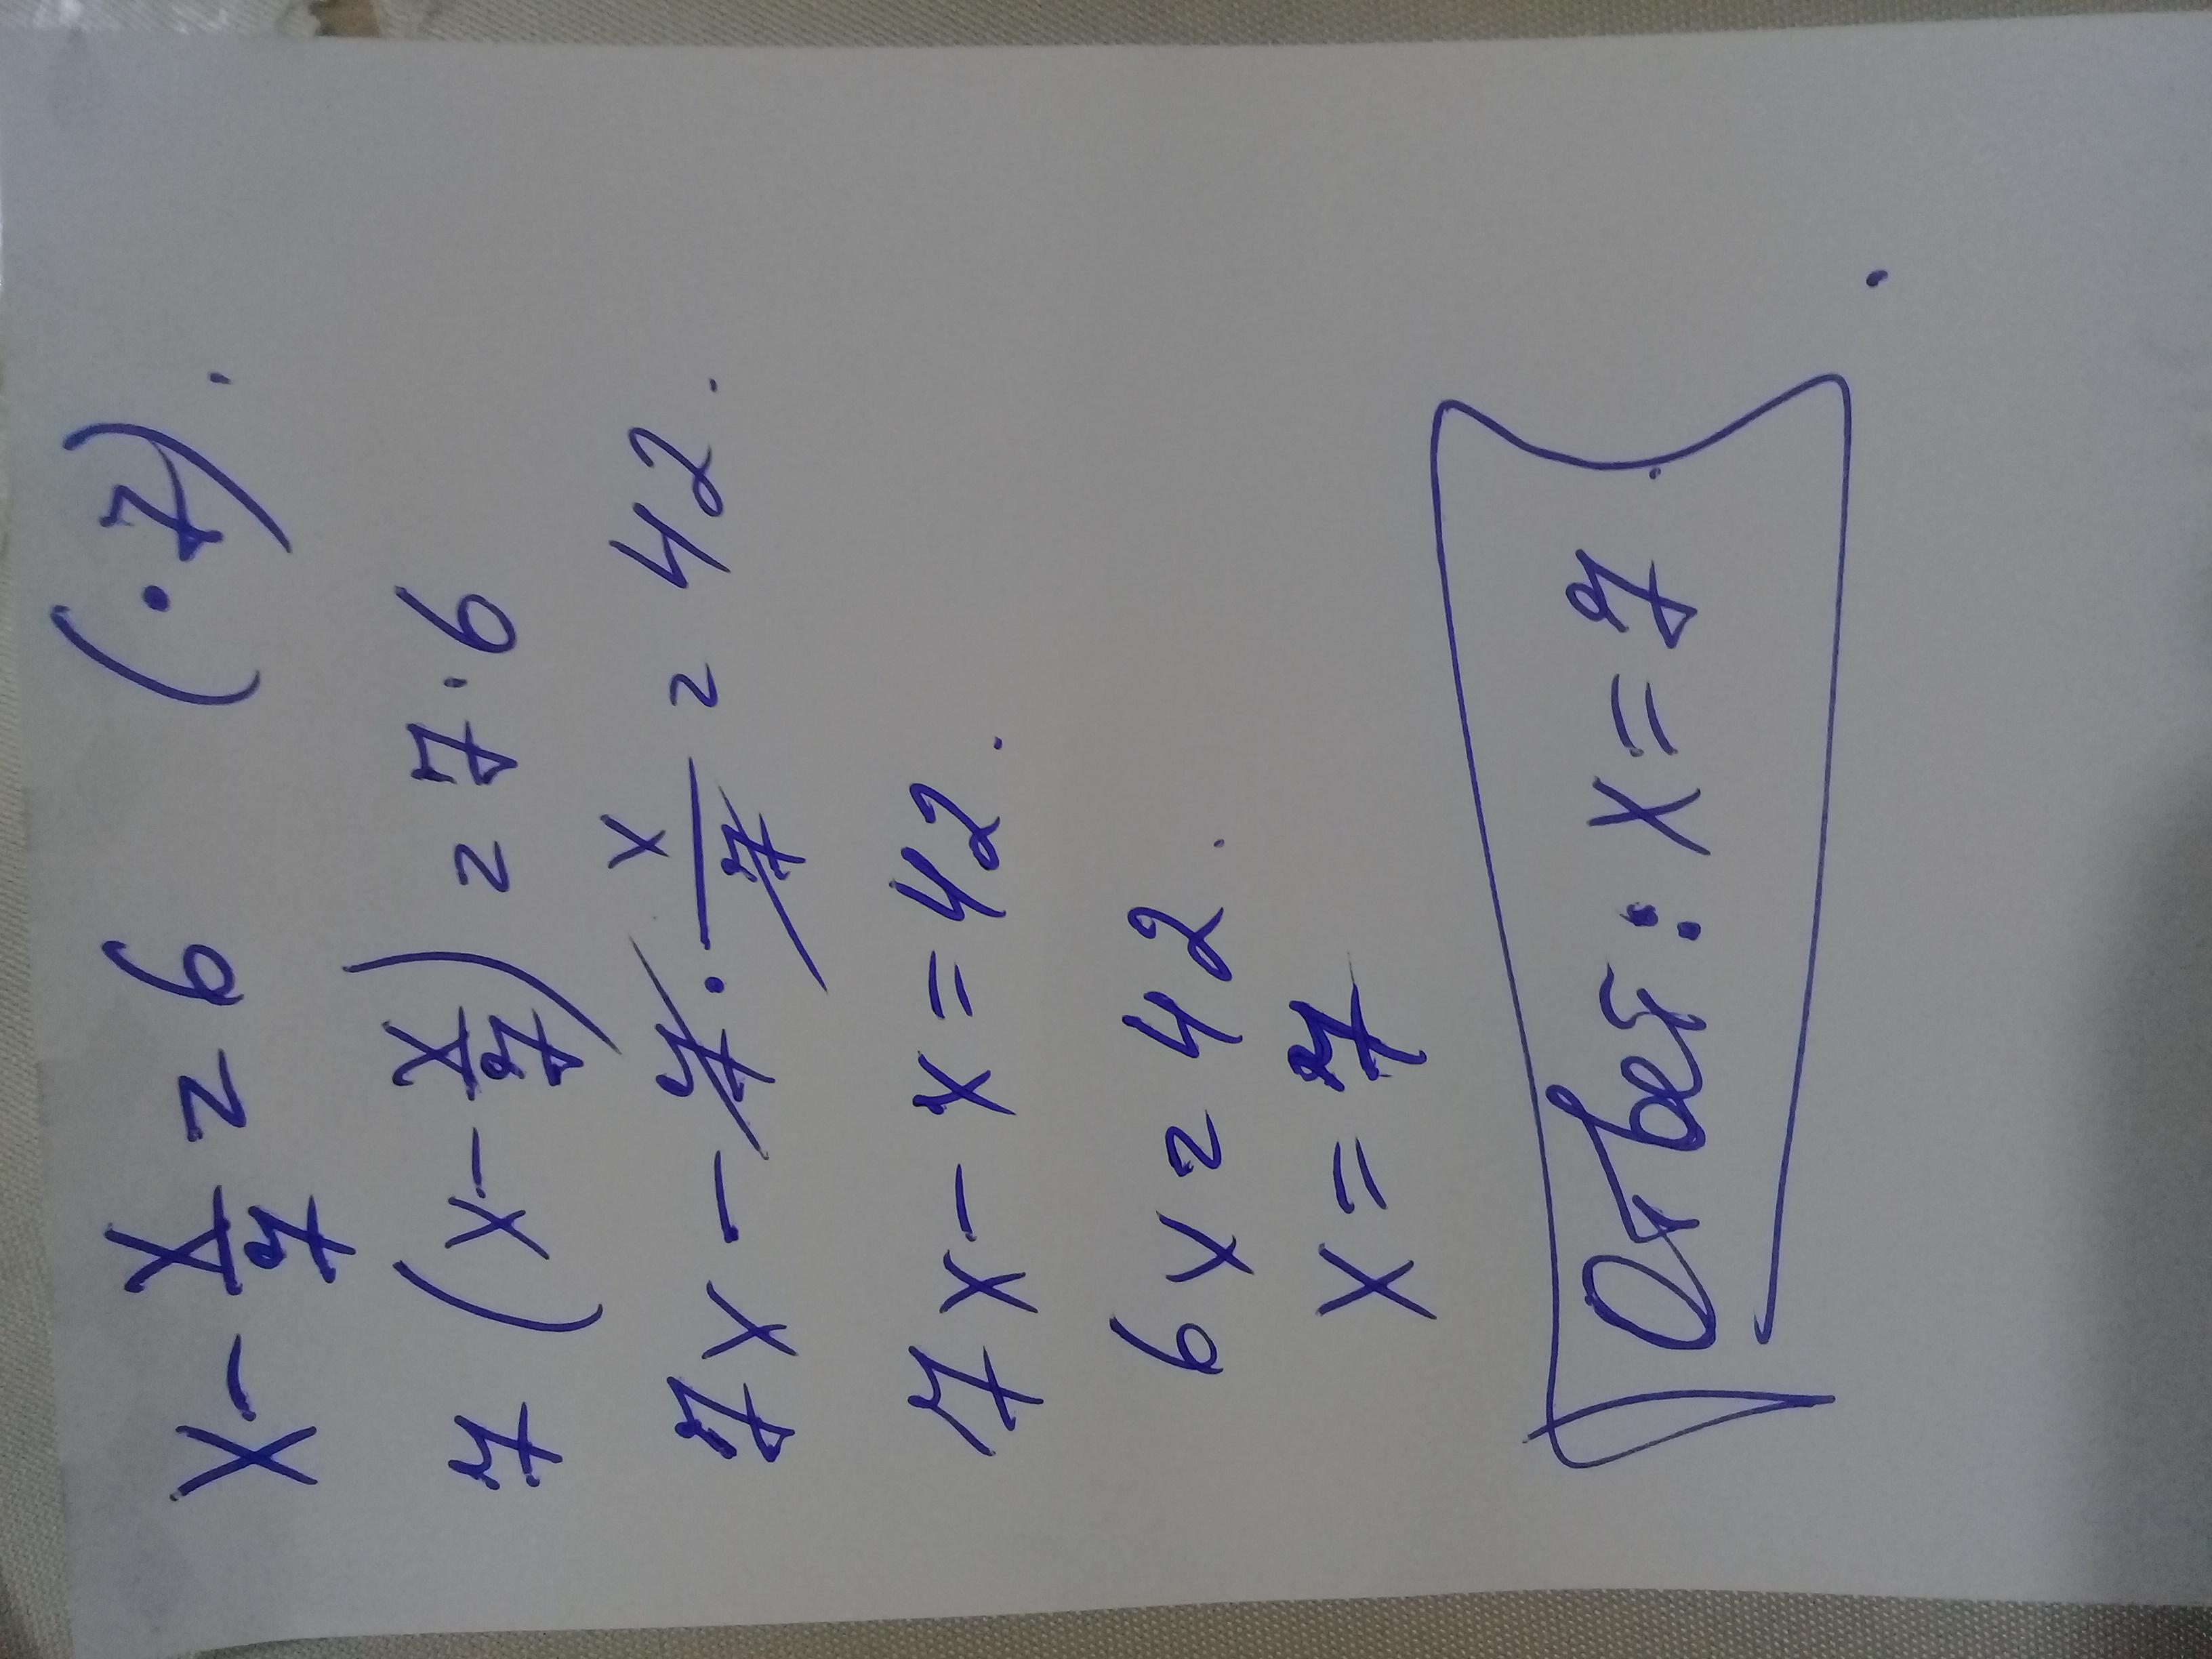 x - x/7 = 6 (·7).
7 (x - x/7) = 7·6
7x - 7 · x/7 = 42.
7x - x = 42.
6x = 42.
x = 7
Ответ: x = 7.